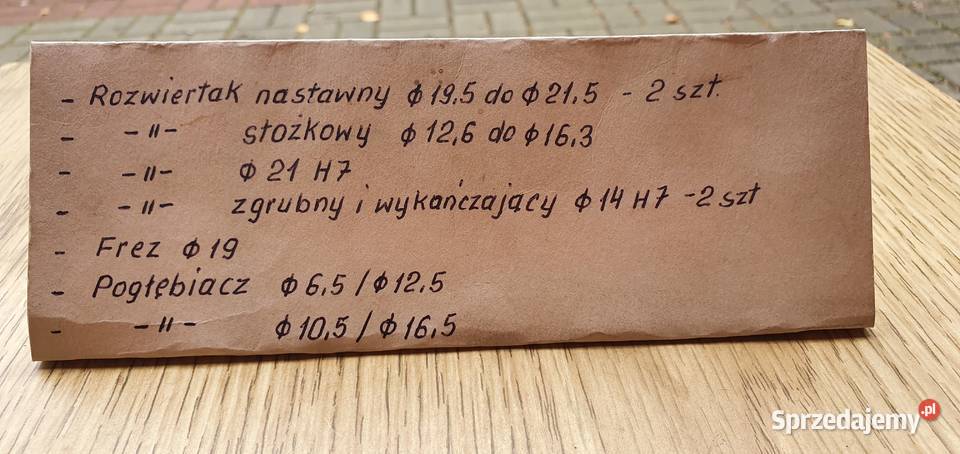 - Rozwiertak nastawny ϕ 19,5 do ϕ 21,5 - 2 szt.
- -"- stożkowy ϕ 12,6 do ϕ 16,3
- -"- ϕ 21 H7
- -"- zgrubny i wykańczający ϕ 14 H7 - 2 szt
- Frez ϕ 19
- Pogłębiacz ϕ 6,5 / ϕ 12,5
- -"- ϕ 10,5 / ϕ 16,5
Sprzedajemy.pl